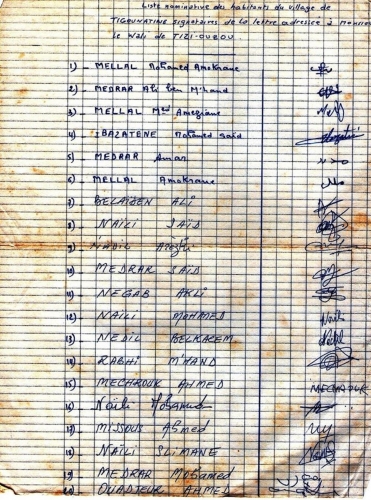 Liste nominative des habitants du village de
TIGOUNATINE signataires de la lettre adressée à Monsieu
le Wali de TIZI-OUZOU.
1) - MELLAL Mohamed Amokrane
2) - MEDRAR Ali ben M'hand
3) - MELLAL Med Ameziane
4) - IBAZATENE Mohamed Said
5) - MEDRAR Amar
6) - MELLAL Amokrane
7) BELAIDEN ALI
8) NAÏLI SAÏD
9) NADIL Arezki
10) MEDRAR SAID
11) NEGAB AKLI
12) NAILI MOHAMMED Naili
13) NEDIL BELKACEM Nedil
14) RABHI M'HAND
15) MECHROUK AHMED
16) Naïli Mohamed
17) MISSOUS Ahmed
18) NAÏLI SLIMANE
19) MEDRAR Mohamed
20) OUADJEUR AHMED